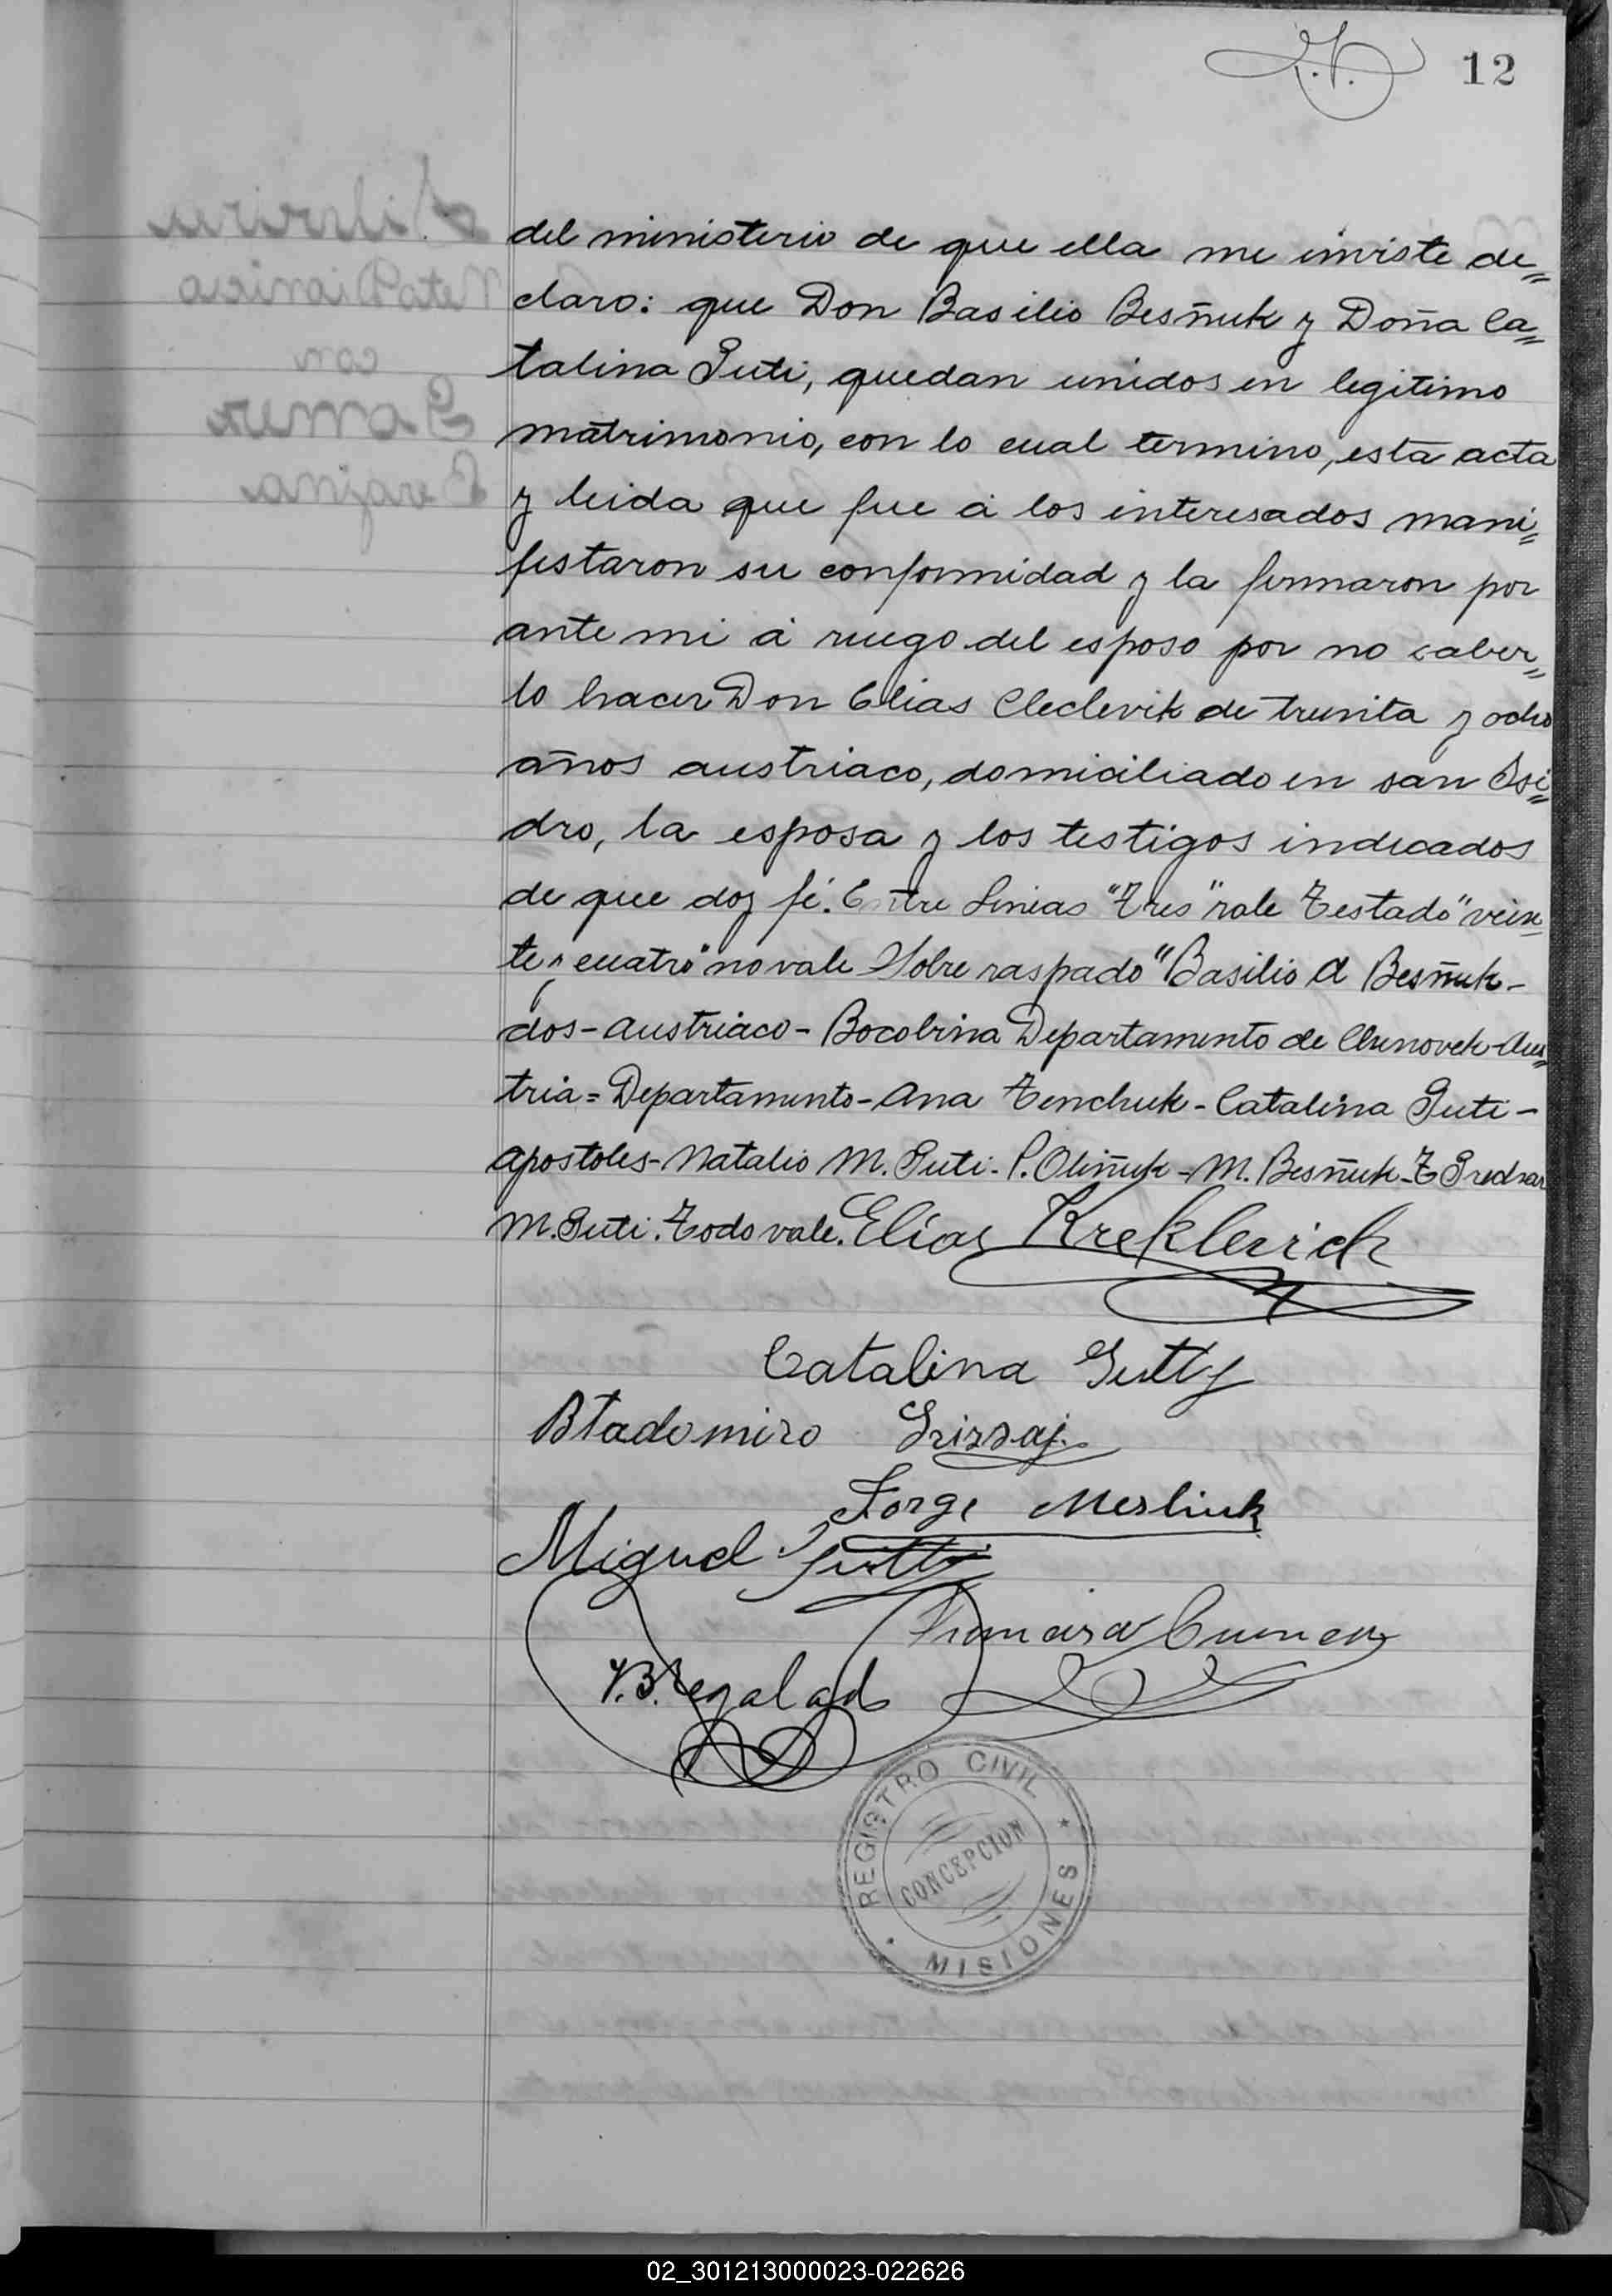 12
del ministerio de que ella me inviste de=
claro: que Don Basilio Besñuk y Doña Ca=
talina Guti, quedan unidos en legitimo
matrimonio, con lo cual termino, esta acta
y leida que fue á los interesados mani=
festaron su conformidad y la firmaron por
ante mi á ruego del esposo por no saber=
lo hacer Don Elias Cleclevik de treinta y ocho
años austriaco, domiciliado en san Isi=
dro, la esposa y los testigos indicados
de que doy fé. Entre Linias "Tres" vale Testado "vein=
te y cuatro" no vale Sobre raspado "Basilio A Besñuk-
dos-austriaco- Bocobina Departamento de Aus=
tria= Departamento-Ana Tenchuk-Catalina Guti-
Apostoles-Natalio M. Guti- P. Oliñuk-M. Besñuk-
M. Guti. Todo vale. Elías Kreklevich
Catalina Gutty
Bladomiro
Jorge Mesliuk
Miguel Gutty
V.B. Regalado
REGISTRO CIVIL
CONCEPCION
MISIONES
Nata Dionicia
con
Gomez
02_301213000023-022626